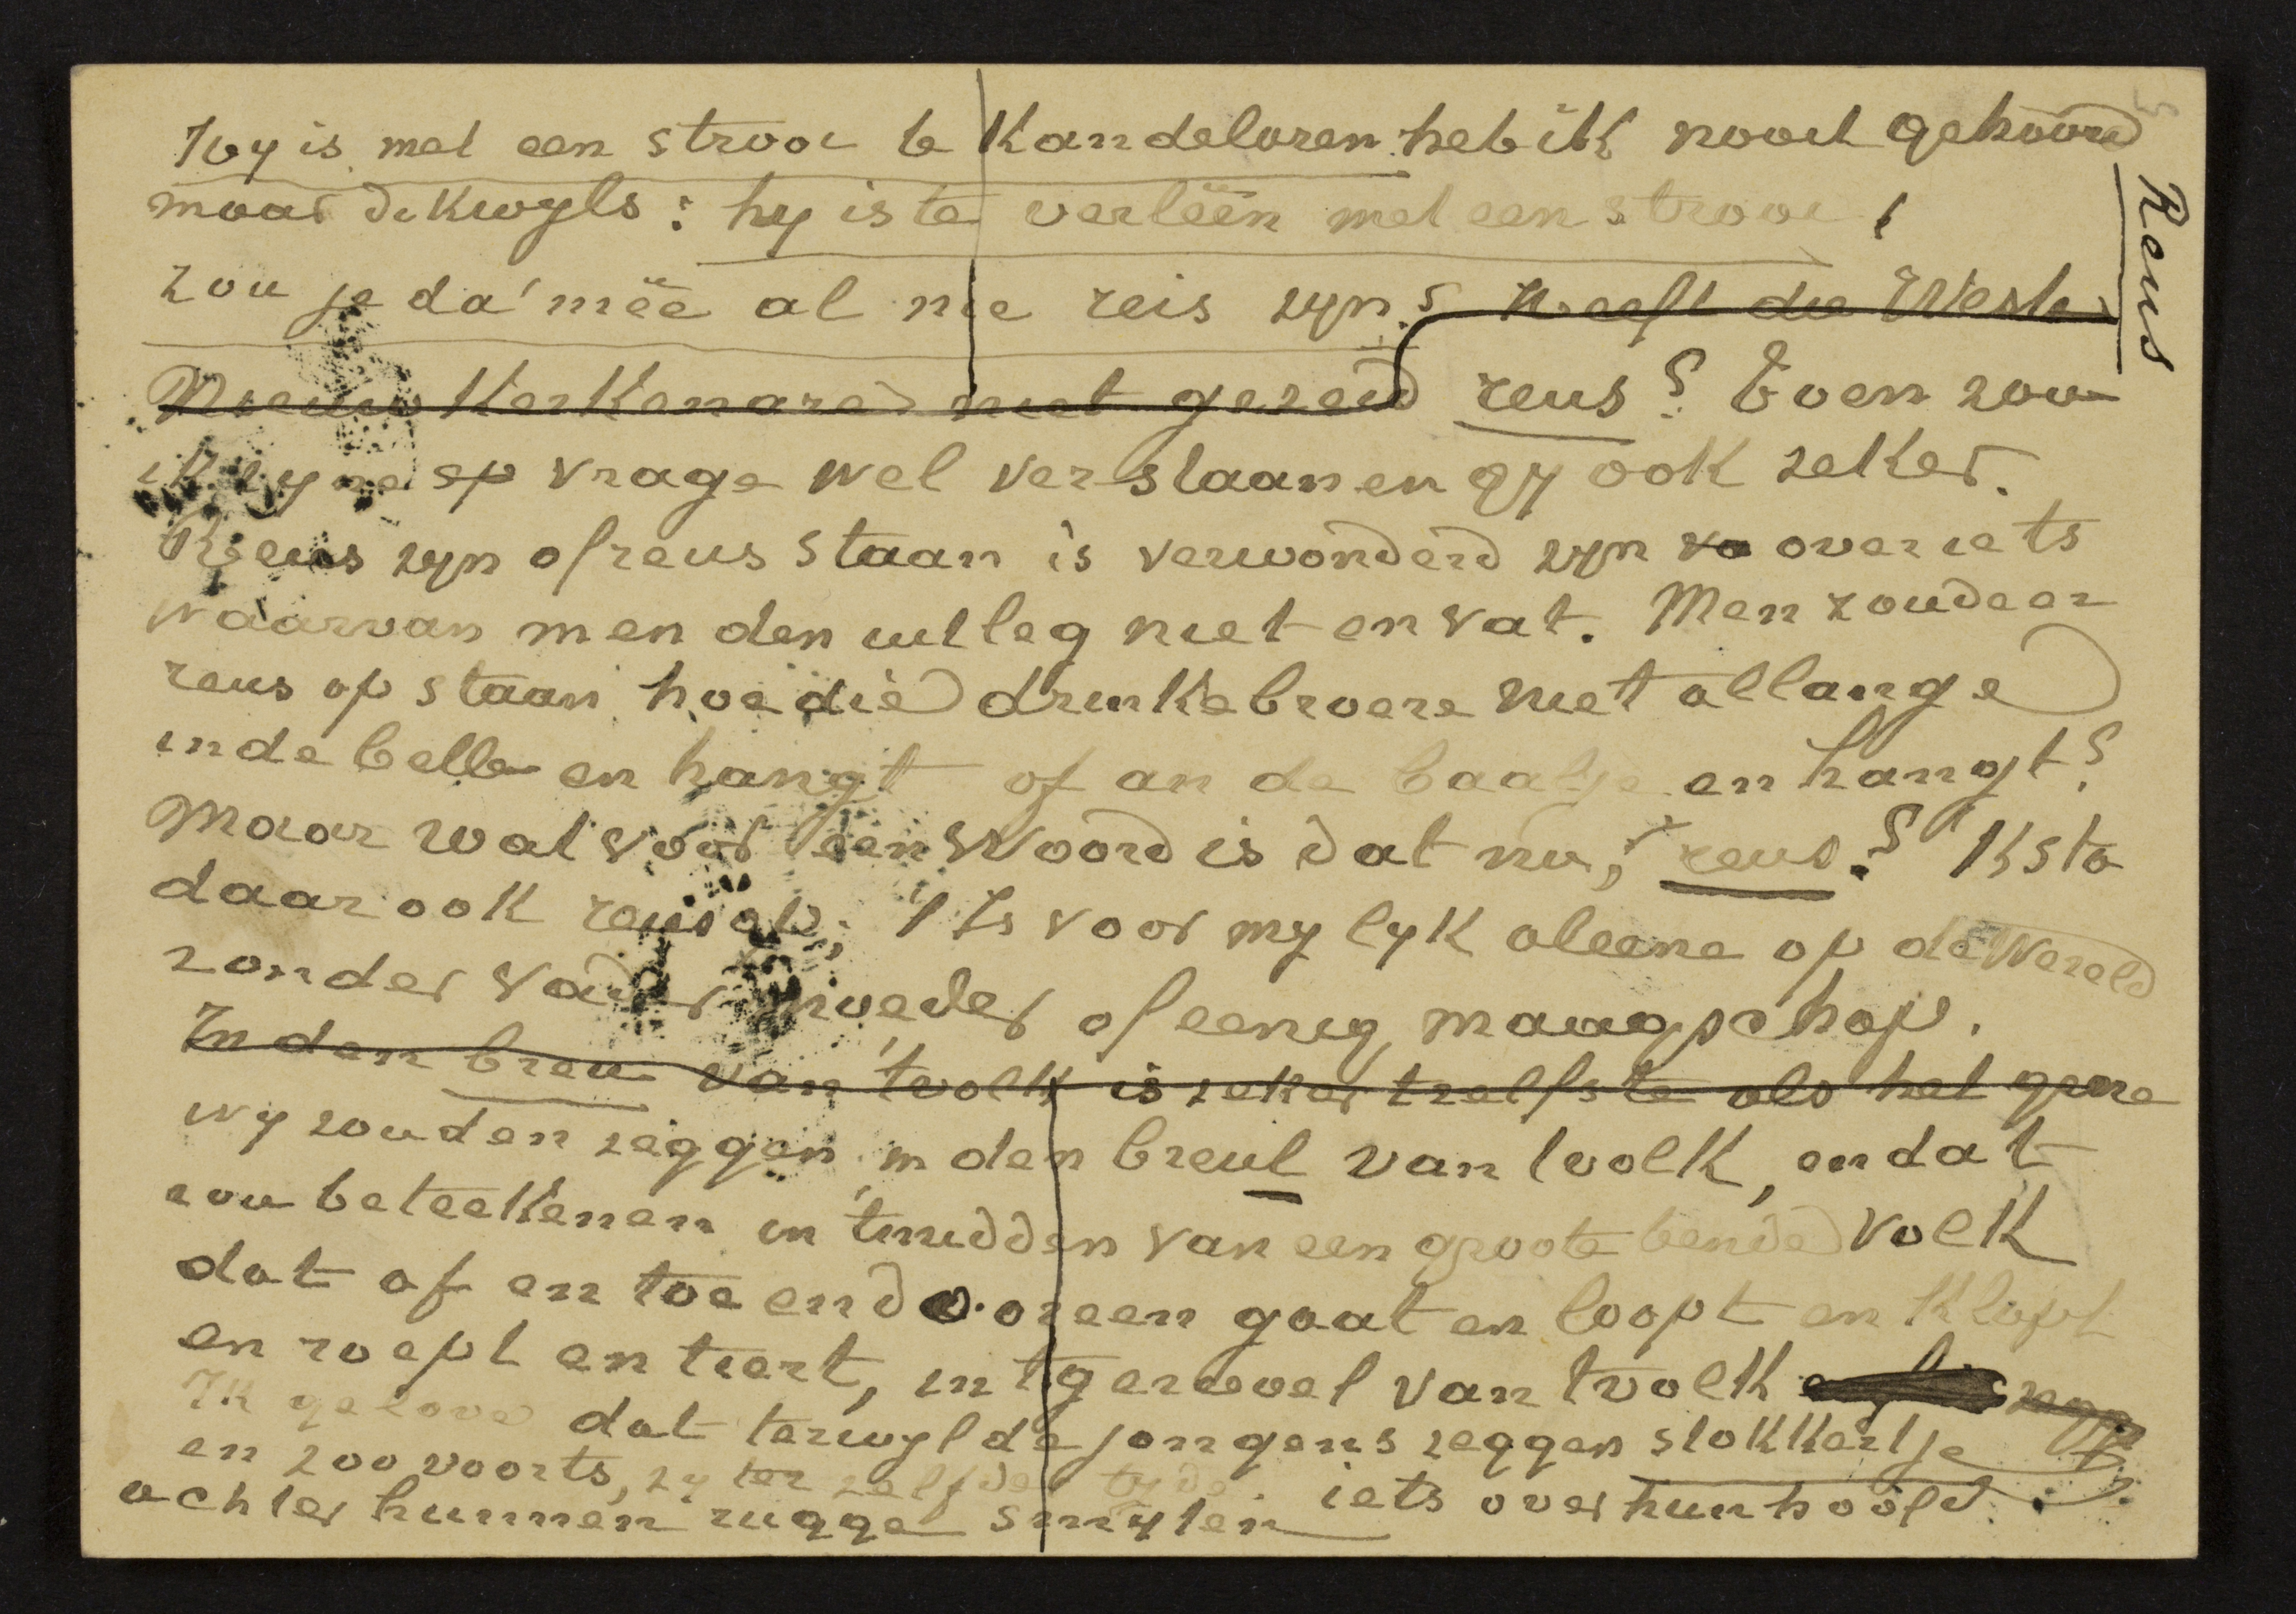 Hy is met een strooi te kandeloren heb ik nooit gehoord
maar dikwyls: hy is te verlëen met een strooi,
zou je da' mëe al nie reis zyn? Heeft die Wester
Nieuwkerkenare niet gezeid reus? Even zou
ik zyne op vrage wel verstaan en gy ook zeker.
Reus zyn of reus staan is verwonderd zyn va over iets
waarvan men den uitleg niet en vat. Men zoude er
reus op staan hoe die drinkebroere niet allange
in de belle en hangt of an de baalje en hangt?
Maar wat voor een woord is dat nu, reus? 'K sta
daar ook reus op; 't Is voor my lyk aleene op de Wereld
zonder vader moeder of eenig maagschap.
In den breu van 't volk is zeker tzelfste als het gene
wy zouden zeggen in den breul van tvolk, en dat
zou beteekenen in 't midden van een groote bende volk
dat af en toe en dooreen gaat en loopt en klapt
en roept en tiert, in 't gerioel van tvolk
Ik geloove dat terwyl de jongens zeggen stokkertje
en zoo voorts, zy ter zelfder tyde iets over hun hoofd
achter hunnen rugge smyten
Reus